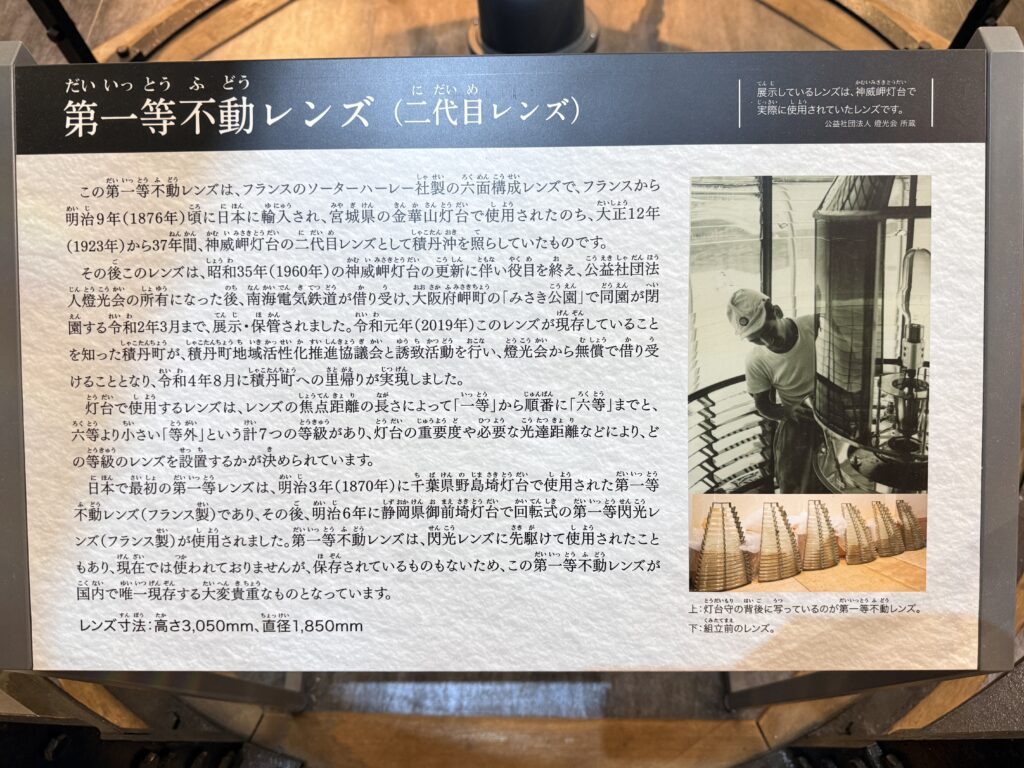 だい いっ とう ふ どう
第一等不動レンズ（二代目レンズ）
に だい め
展示しているレンズは、神威岬灯台で
実際に使用されていたレンズです。
公益社団法人 燈光会 所蔵
この第一等不動レンズは、フランスのソーターハーレー社製の六面構成レンズで、フランスから
明治9年（1876年）頃に日本に輸入され、宮城県の金華山灯台で使用されたのち、大正12年
（1923年）から37年間、神威岬灯台の二代目レンズとして積丹沖を照らしていたものです。
その後このレンズは、昭和35年（1960年）の神威岬灯台の更新に伴い役目を終え、公益社団法
人燈光会の所有になった後、南海電気鉄道が借り受け、大阪府岬町の「みさき公園」で同園が閉
園する令和2年3月まで、展示・保管されました。令和元年（2019年）このレンズが現存していること
を知った積丹町が、積丹町地域活性化推進協議会と誘致活動を行い、燈光会から無償で借り受
けることとなり、令和4年8月に積丹町への里帰りが実現しました。
灯台で使用するレンズは、レンズの焦点距離の長さによって「一等」から順番に「六等」までと、
六等より小さい「等外」という計7つの等級があり、灯台の重要度や必要な光達距離などにより、ど
の等級のレンズを設置するかが決められています。
日本で最初の第一等レンズは、明治3年（1870年）に千葉県野島埼灯台で使用された第一等
不動レンズ（フランス製）であり、その後、明治6年に静岡県御前埼灯台で回転式の第一等閃光レ
ンズ（フランス製）が使用されました。第一等不動レンズは、閃光レンズに先駆けて使用されたこと
もあり、現在では使われておりませんが、保存されているものもないため、この第一等不動レンズが
国内で唯一現存する大変貴重なものとなっています。
レンズ寸法：高さ3,050mm、直径1,850mm
上：灯台守の背後に写っているのが第一等不動レンズ。
下：組立前のレンズ。